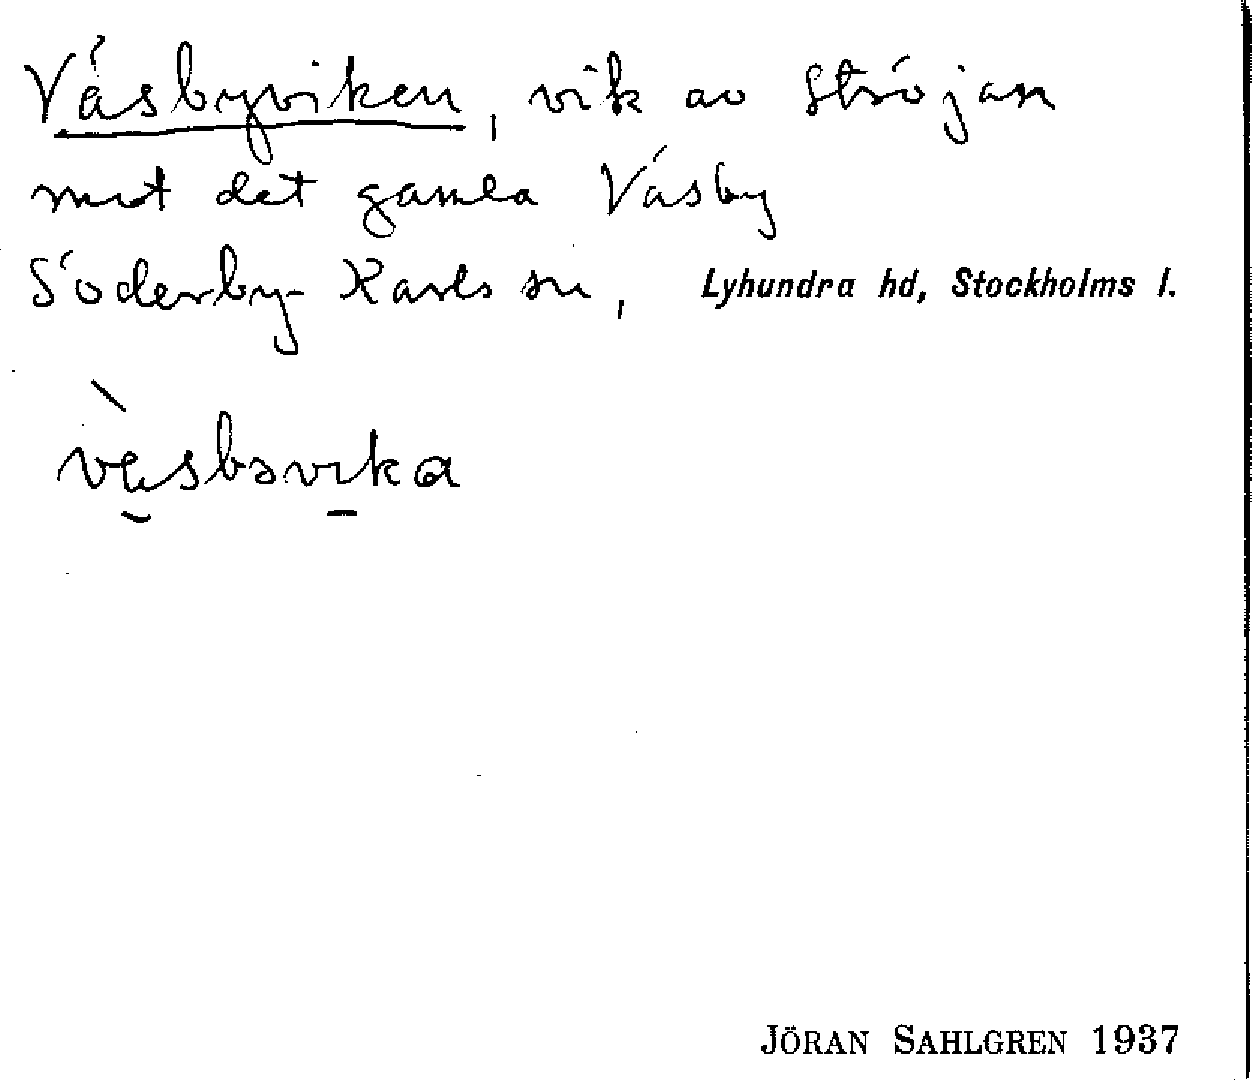 Väsbyviken, vik av Ströjan
mot det gamla Väsby
Söderby-Karls sn, Lyhundra hd, Stockholms l.
väsbəvika
JÖRAN SAHLGREN 1937